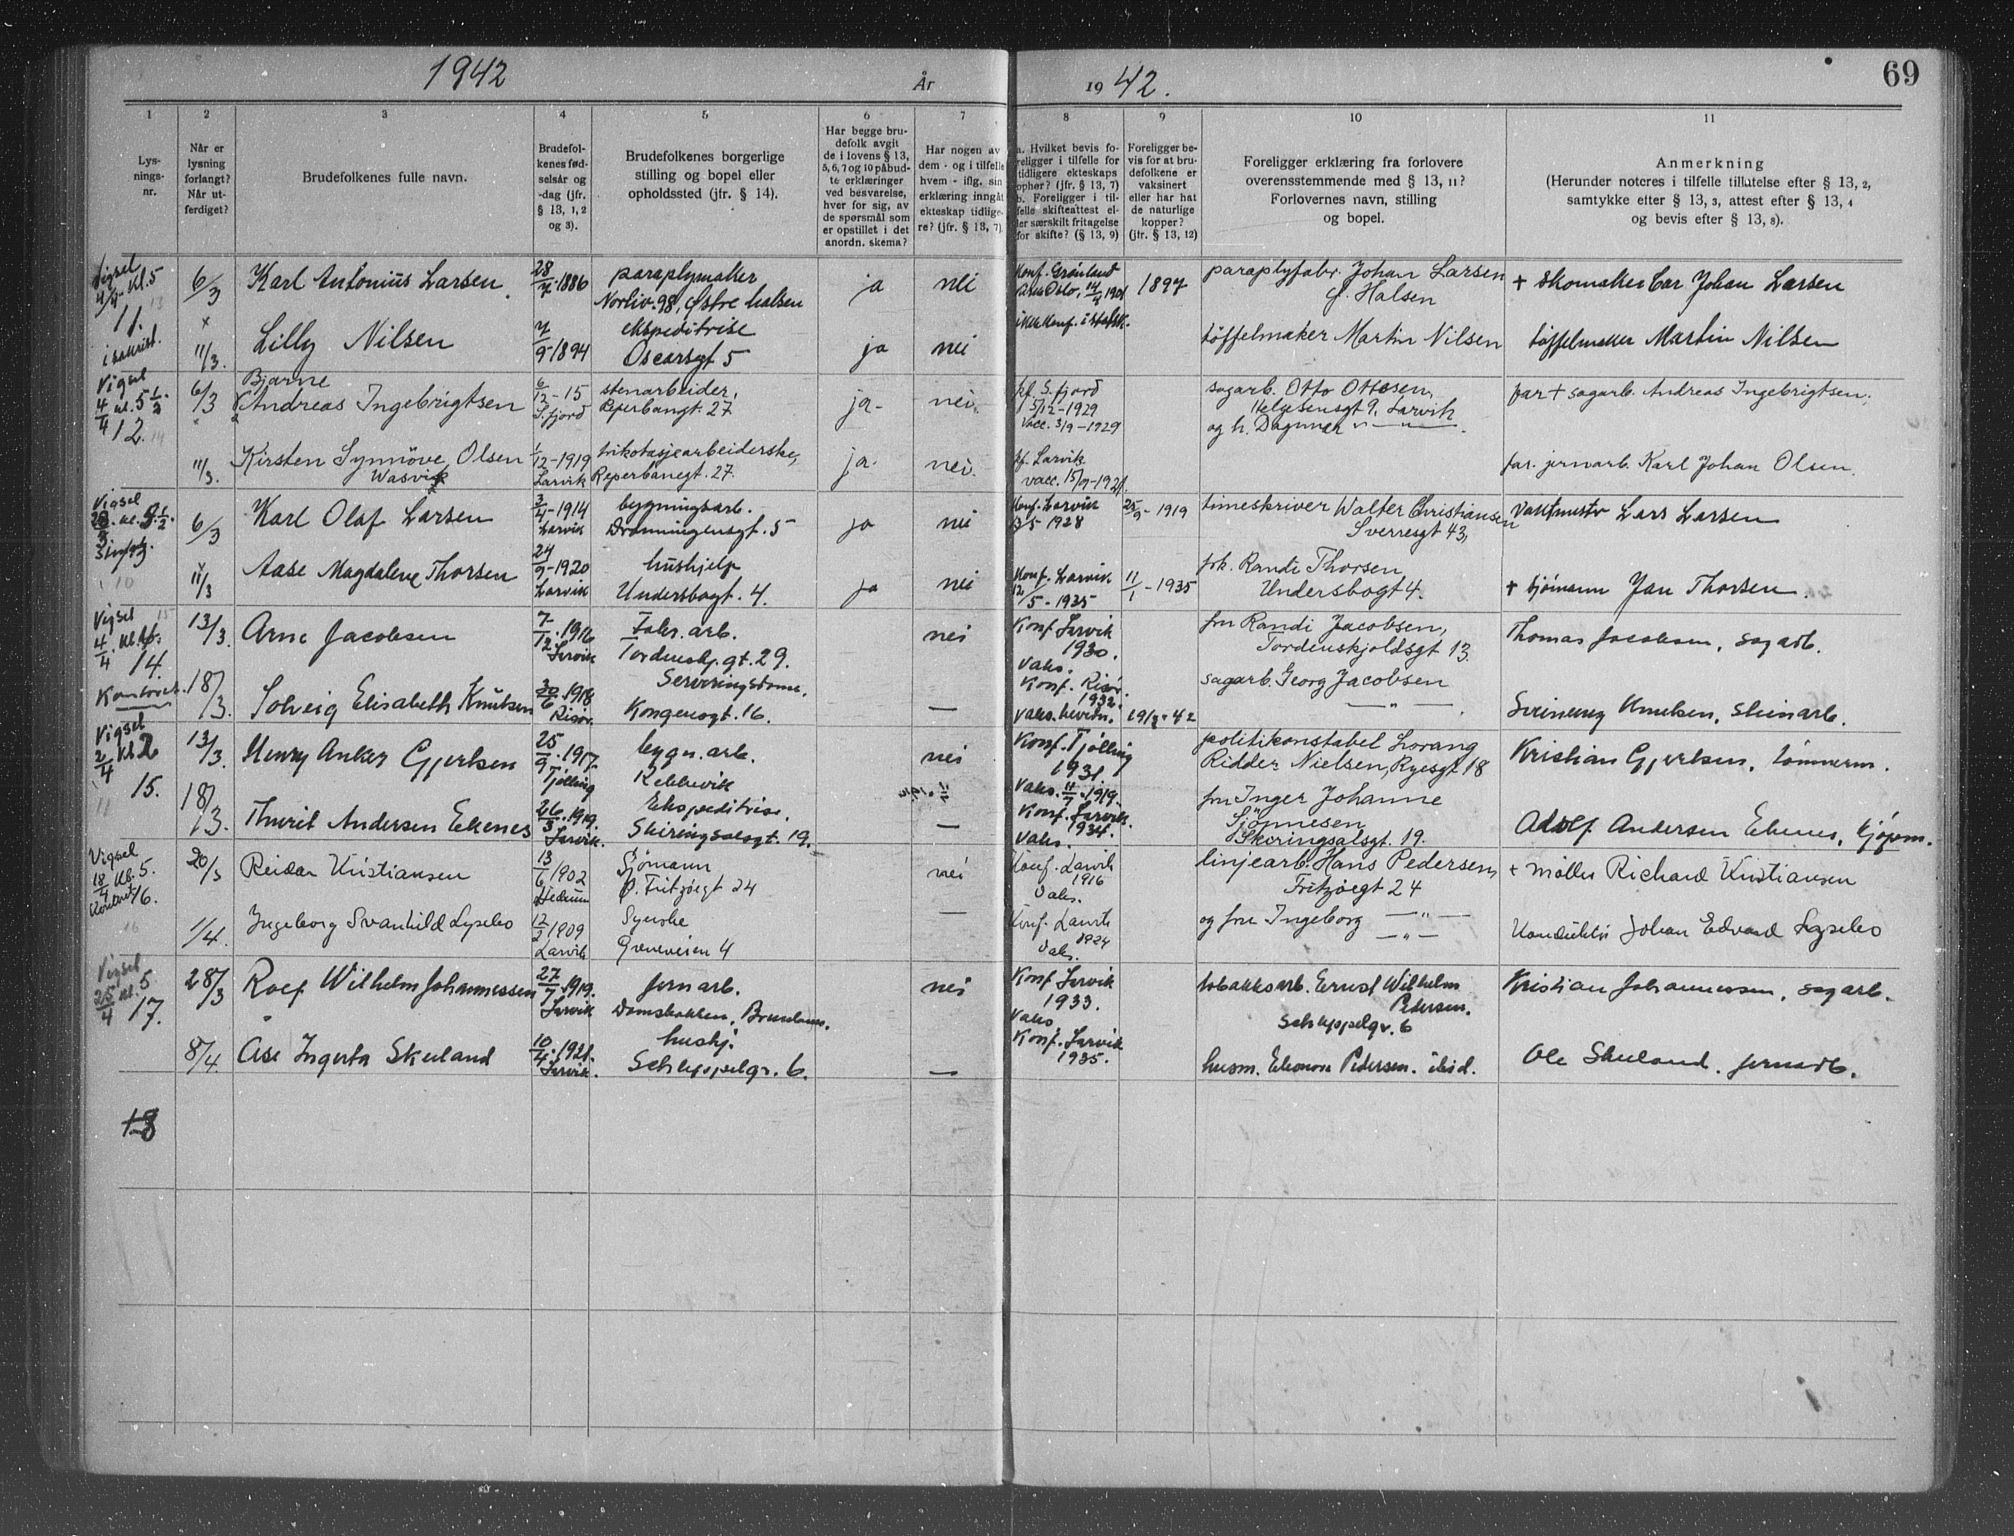 1942
År
1942.
69
1
2
3
4
5
6
7
8
9
10
11
Lys-
nings-
nr.
Når er
lysning
forlangt?
Når ut-
ferdiget?
Brudefolkenes fulle navn.
Brudefol-
kenes fød-
selsår og
-dag (jfr.
§ 13, 1, 2
og 3).
Brudefolkenes borgerlige
stilling og bopel eller
opholdssted (jfr. § 14).
Har begge bru-
defolk avgit
de i lovens § 13,
5, 6, 7 og 10 påbud-
te erklæringer
ved besvarelse,
hver for sig, av
de spørsmål som
er opstillet i det
anordn. skema?
Har nogen av
dem - og i tilfelle
hvem - iflg. sin
erklæring inngått
ekteskap tidlige-
re? (jfr. § 13, 7).
a. Hvilket bevis fo-
religger i tilfelle for
tidligere ekteskaps
ophør? (jfr. § 13, 7)
b. Foreligger i til-
felle skifteattest el-
ler særskilt fritagelse
for skifte? (§ 13, 9)
Foreligger be-
vis for at bru-
defolkene er
vaksinert
eller har hat
de naturlige
kopper?
(jfr. § 13, 12)
Foreligger erklæring fra forlovere
overensstemmende med § 13, 11?
Forlovernes navn, stilling
og bopel.
Anmerkning
(Herunder noteres i tilfelle tillatelse efter § 13, 2,
samtykke efter § 13, 3, attest efter § 13, 4
og bevis efter § 13, 8).
Vigsel
4/4 Kl. 5
11.
i sakrist.
6/3
Karl Antonius Larsen
28/7-1886
paraplymaker
Norliv. 98, Østre halsen
ja
nei
Konf. Grønland
Oslo, 14/4 1901
1897
paraplyfabr. Johan Larsen
Ø. Halsen
+ skomaker Car Johan Larsen
11/3.
Lilly Nilsen
7/9-1894
ekspeditrise
Oscarsgt 5
ja
nei
ikke konf. i statsk.
tøffelmaker Martin Nilsen
tøffelmaker Martin Nilsen
Vigsel
4/4 kl. 5 1/2.
12.
6/3
Bjarne
Andreas Ingebrigtsen
6/12-15
S.fjord
stenarbeider,
Reperbangt. 27
ja-
nei.
kf. S. fjord
5/12-1929
Vacc. 3/9-1929
sagarb. Otto Ottesen,
Helgesensgt 9, Larvik
og h. Dagmar " — " — .
far + sagarb. Andreas Ingebrigtsen.
11/3.
Kirsten Synnöve Olsen
Wasvik
1/12-1919
Larvik
trikotasjearbeiderske,
Reperbanegt. 27.
ja.
nei.
kf. Larvik
vacc. 15/9-1921
far. jernarb. Karl Johan Olsen.
Vigsel
6/3
Karl Olaf Larsen
3/4-1914
Larvik
bygningsarb.
Dronningensgt. 5
ja
nei
Konf. Larvik
13/5 1928
25/9-1919
timeskriver Walter Christiansen
Sverresgt 43,
Vaktmestr Lars Larsen
11/3
Aase Magdalene Thorsen
24/9-1920
Larvik
hushjelp
Undersbogt. 4.
ja
nei
Konf. Larvik
12/5-1935
11/1-1935
frk. Randi Thorsen,
Undersbogt 4.
+ sjömann Jan Thorsen.
Vigsel
4/4. kl.
14.
Kontoret.
13/3.
Arne Jacobsen
7/12.1916
Larvik
Fabr. arb.
Tordenskj. gt. 29.
nei
Konf. Larvik
1930.
Vaks.
fru Randi Jacobsen,
Tordenskjoldsgt 13.
Thomas Jacobsen, sagarb.
18/3.
Solveig Elisabeth Knutsen
30/6.1918
Risør
Serveringsdame.
Kongensgt. 16.
—
Konf. Risør.
1932.
Vaks.
19/3-42
sagarb. Georg Jacobsen
— " — .
Sveinung Knutsen, stenarb.
Vigsel
2/4 Kl 2
15.
13/3.
Henry Anker Gjertsen
25/9.1917.
Tjølling
bygn. arb.
Rekkevik
nei
Konf. Tjølling
1931.
Vaks. 11/7.1919.
politikonstabel Lorang
Ridder Nielsen, Ryesgt 18
Kristian Gjertsen, tømmerm.
18/3.
Thurid Andersen Ekenes
26/3.1919.
Larvik.
Ekspeditrise.
Skiringsalsgt. 19.
—
Konf. Larvik.
1934.
Vaks.
fru Inger Johanne
Sjønnesen
Skiringsalsgt. 19.
Adolf Andersen Ekenes, kjøpm.
Vigsel
18/4 Kl. 5.
Kontoret 16.
20/3
Reidar Kristiansen
13/6 1902
Hedrum
Sjömann
Ø. Fritzöegt 24
nei
Konf. Larvik
1916
Vaks.
linjearb. Hans Pedersen,
Fritzöegt 24
+ Møller Richard Kristiansen
1/4.
Ingeborg Svanhild Lysebo
12/2 1909
Larvik
Syerske
Greveveien 4
—
Konf. Larvik
1924
Vaks.
og fru Ingeborg — " —
— " —
Konduktør Johan Edvard Lysebo
Vigsel
25/4 kl. 5
17.
28/3
Rolf Wilhelm Johannessen
27/7.1919.
Larvik
Jernarb.
nei
Konf. Larvik
1933.
Vaks
tobakksarb. Ernst Wilhelm
Pedersen.
Schleppelgr. 6
Kristian Johannessen, sagarb.
8/4.
Åse Ingerta Skuland
10/4.1921.
Larvik.
hushj.
Schleppelgr. 6.
—
Konf. Larvik
1935.
husm. Eleonora Pedersen. ibid.
Ole Skuland. jernarb.
18